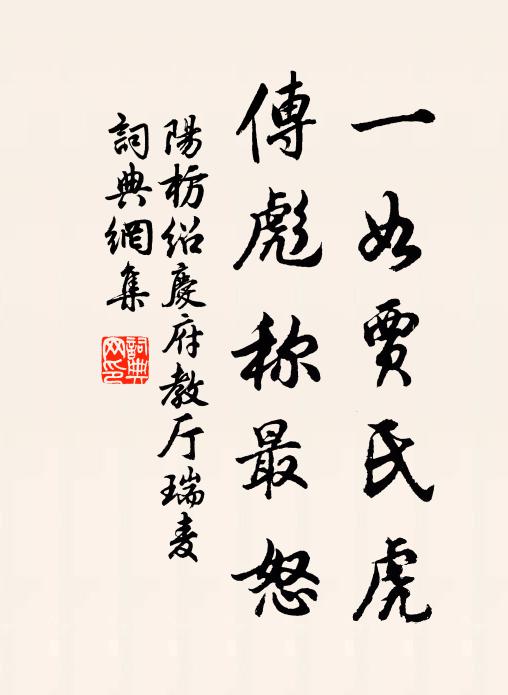 一如賈氏虎
傳彪称最怒
陽枋绍慶府教厅瑞麦
詞典網集
詞典網印